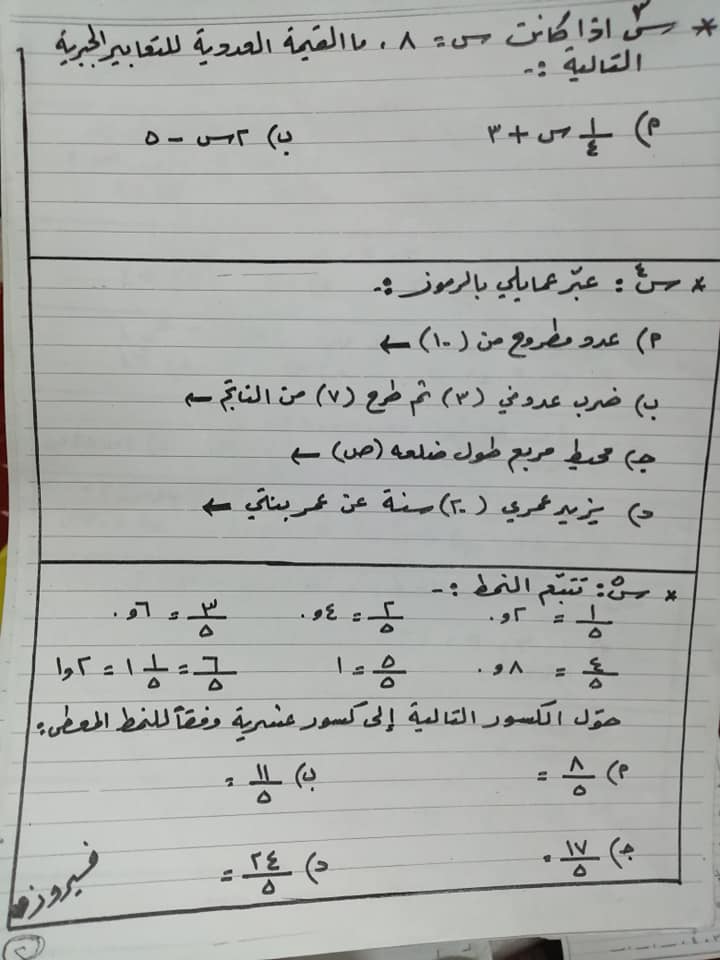 * س٣ اذا كانت س = ٨ ، ما القيمة العددية للتعابير الجبرية
التالية :-
أ) ١/٤ س + ٣ ب) ٢س - ٥
* س٤ : عبّر عما يلي بالرموز :-
أ) عدد مطروح من (١٠) ←
ب) ضرب عدد في (٣) ثم طرح (٧) من الناتج ←
ج) محيط مربع طول ضلعه (ص) ←
د) يزيد عمري (٢٠) سنة عن عمر بنتي ←
* س٥ : تتبّع النمط :-
١/٥ = ٢و٠ ٢/٥ = ٤و٠ ٣/٥ = ٦و٠
٤/٥ = ٨و٠ ٥/٥ = ١ ٦/٥ = ١ ١/٥ = ٢و١
حوّل الكسور التالية إلى كسور عشرية وفقاً للنمط المعطى :
أ) ٨/٥ = ب) ١١/٥ =
ج) ١٧/٥ = د) ٢٤/٥ =
فيروز
٢